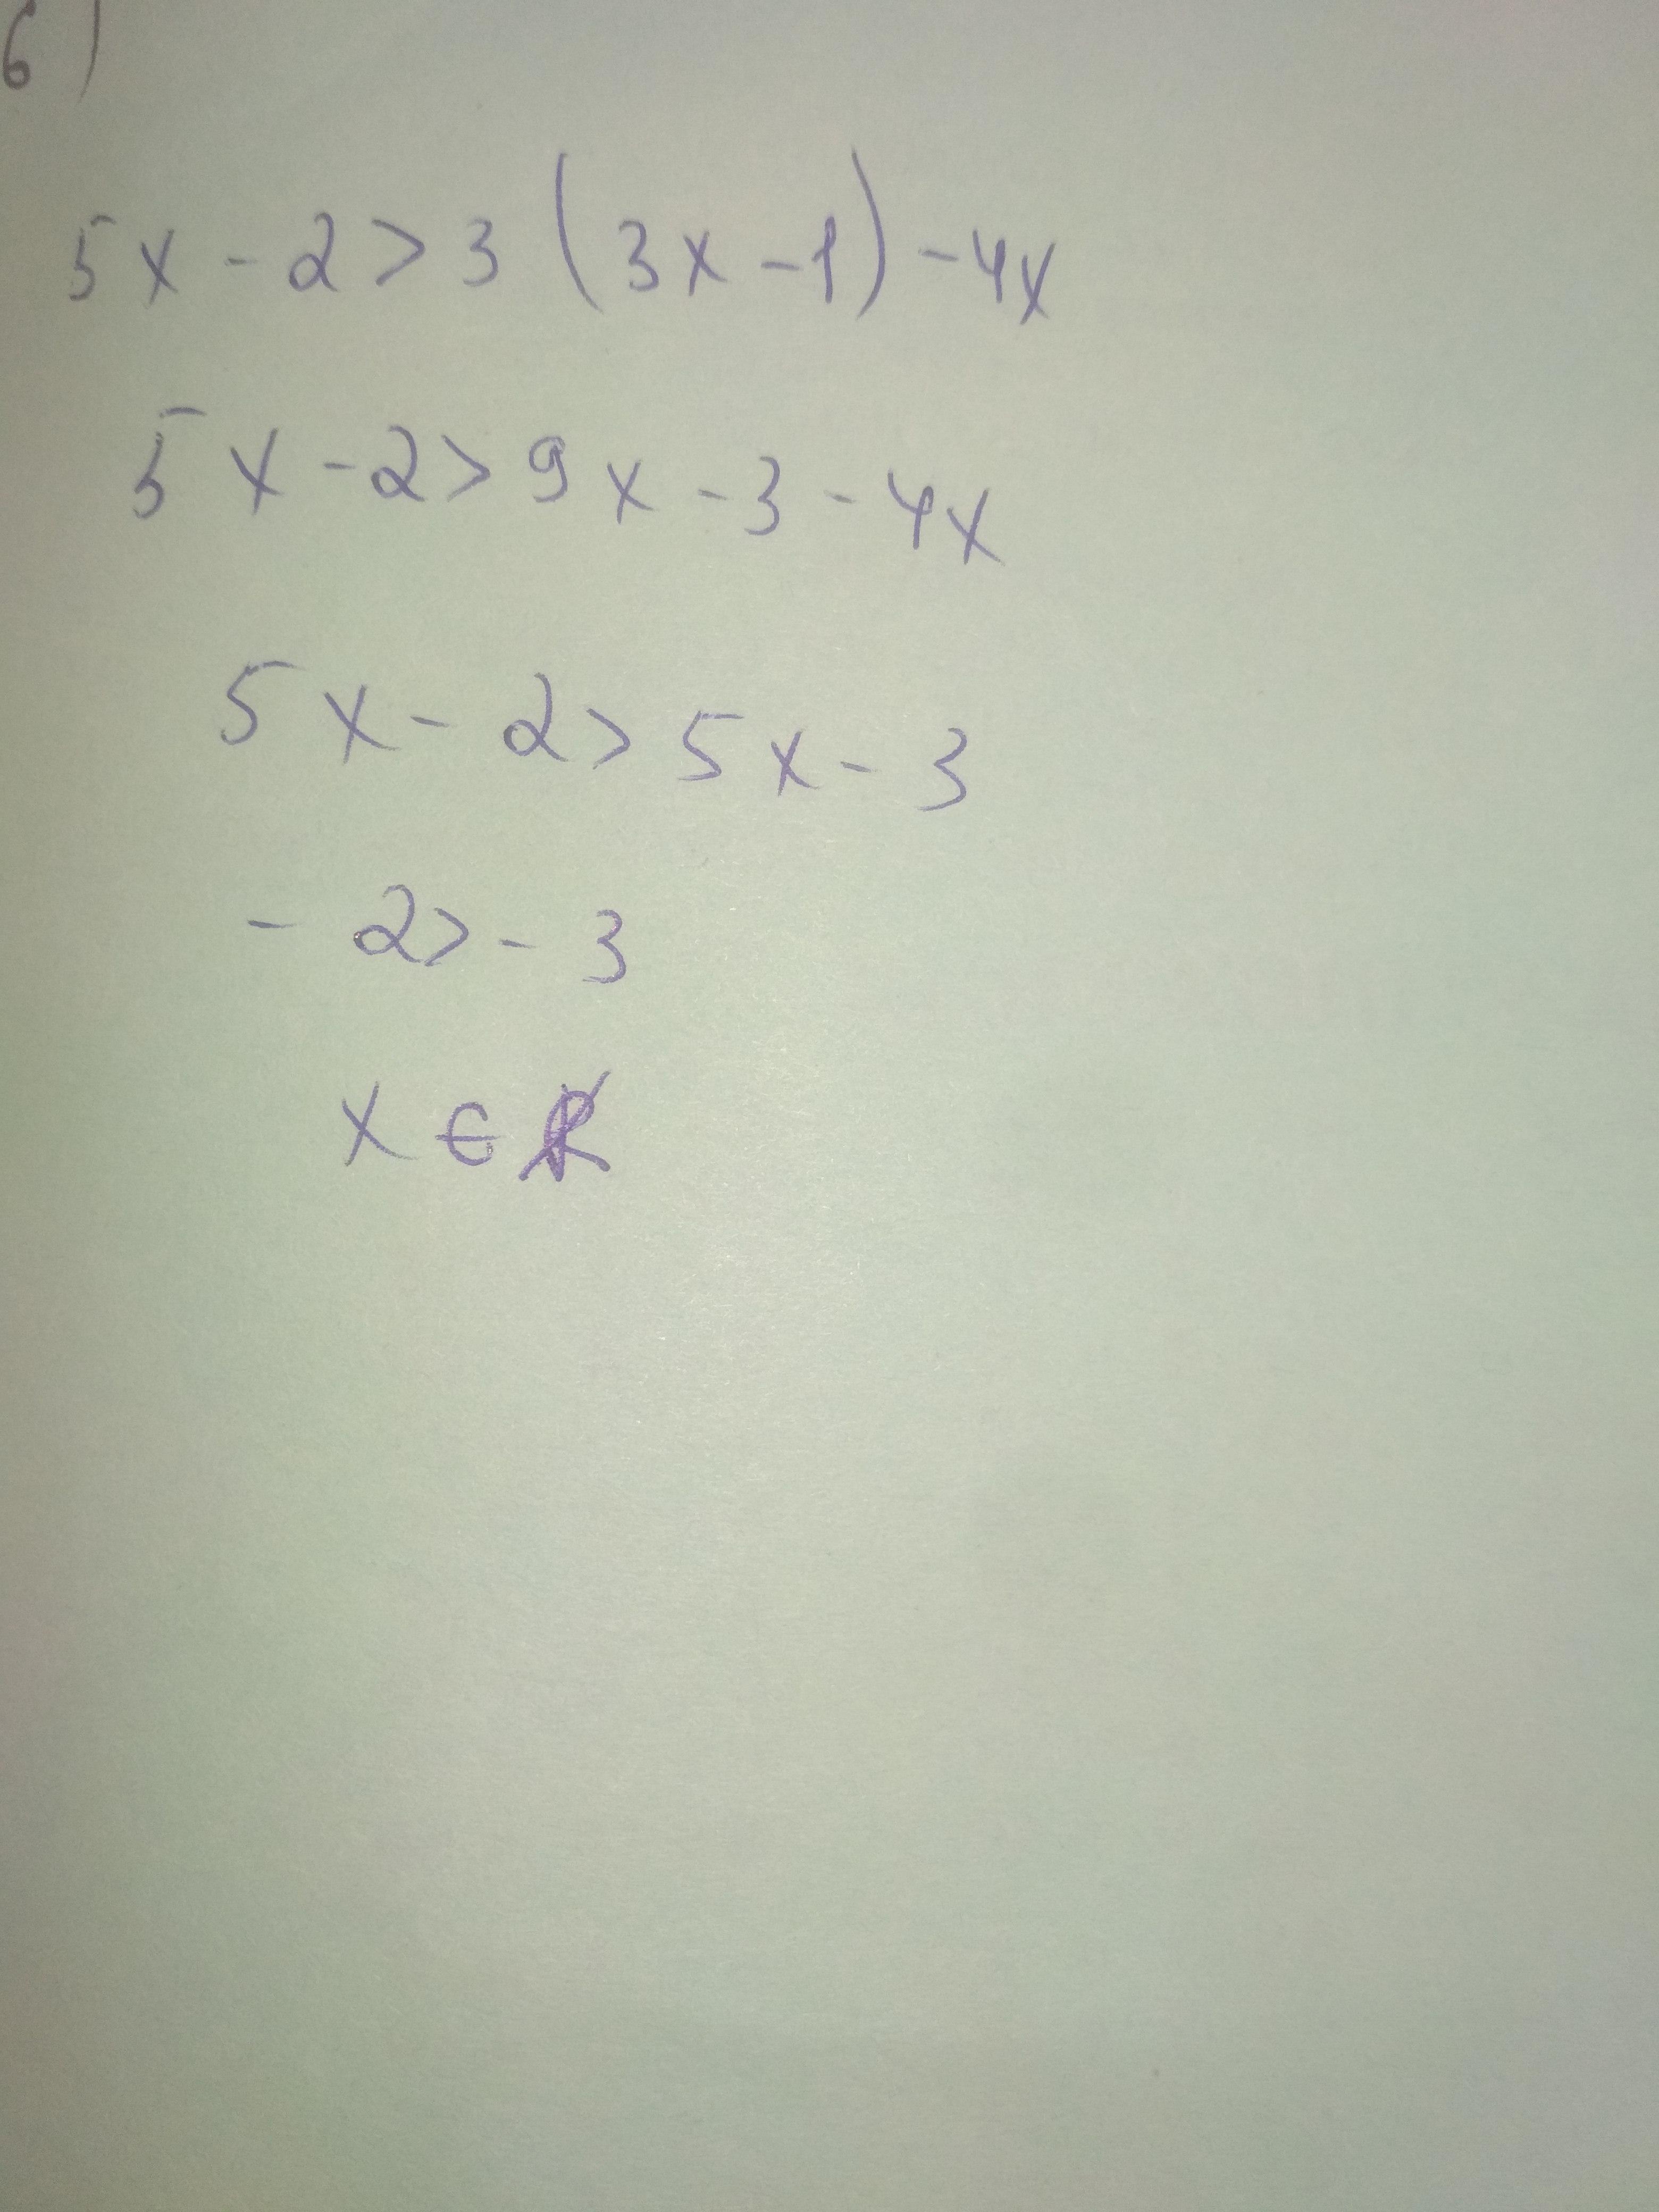 б)
5x - 2 > 3 (3x - 1) - 4x
5x - 2 > 9x - 3 - 4x
5x - 2 > 5x - 3
- 2 > - 3
x ∈ R